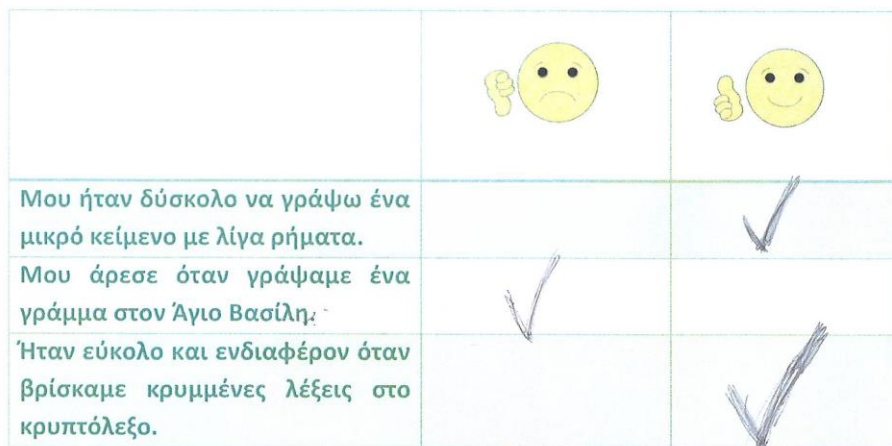 Μου ήταν δύσκολο να γράψω ένα
μικρό κείμενο με λίγα ρήματα.
Μου άρεσε όταν γράψαμε ένα
γράμμα στον Άγιο Βασίλη.
Ήταν εύκολο και ενδιαφέρον όταν
βρίσκαμε κρυμμένες λέξεις στο
κρυπτόλεξο.